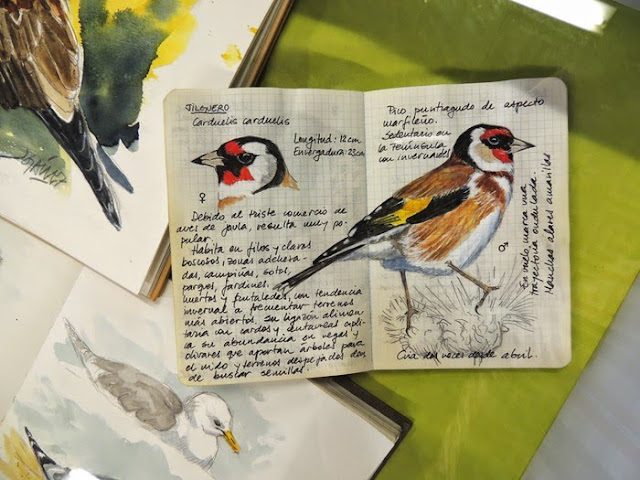 JILGUERO
Carduelis carduelis
Longitud: 12 cm
Envergadura: 23 cm
♀
Debido al triste comercio de
aves de jaula, resulta muy po-
pular.
Habita en filos y claros
boscosos, zonas adehesa-
das, campiñas, sotos,
parques, jardines,
huertos y frutaledas, con tendencia
invernal a frecuentar terrenos
más abiertos. Su ligazón alimen-
taria con cardos y centaureas expli-
ca su abundancia en vegas y
olivares que aportan árboles para
el nido y terrenos despejados don
de buscar semillas.
Pico puntiagudo de aspecto
marfileño.
Sedentario en
la Península
con invernantes
♂
En vuelo, marca una
trayectoria ondulada.
Manchas alares amarillas
Cría dos veces desde abril.